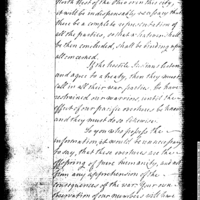 North West of the Ohio over this city,
it will be indispensibly necessary that
there be a complete representation of
all the parties, or that whatever shall
be then concluded, shall be binding upon
all concerned.
If the hostile Indians listen
and agree to a treaty, then they must
call in all their war parties. So have
restrained our warriors, until the
effect of our pacific overtures be known
and they must do so likewise.
To you who possess the
information, it would be unnecessary
to say, that these overtures are the
offspring of pure humanity, and not
from any apprehension of the
consequences of the war. Your own
observation of our numbers will have